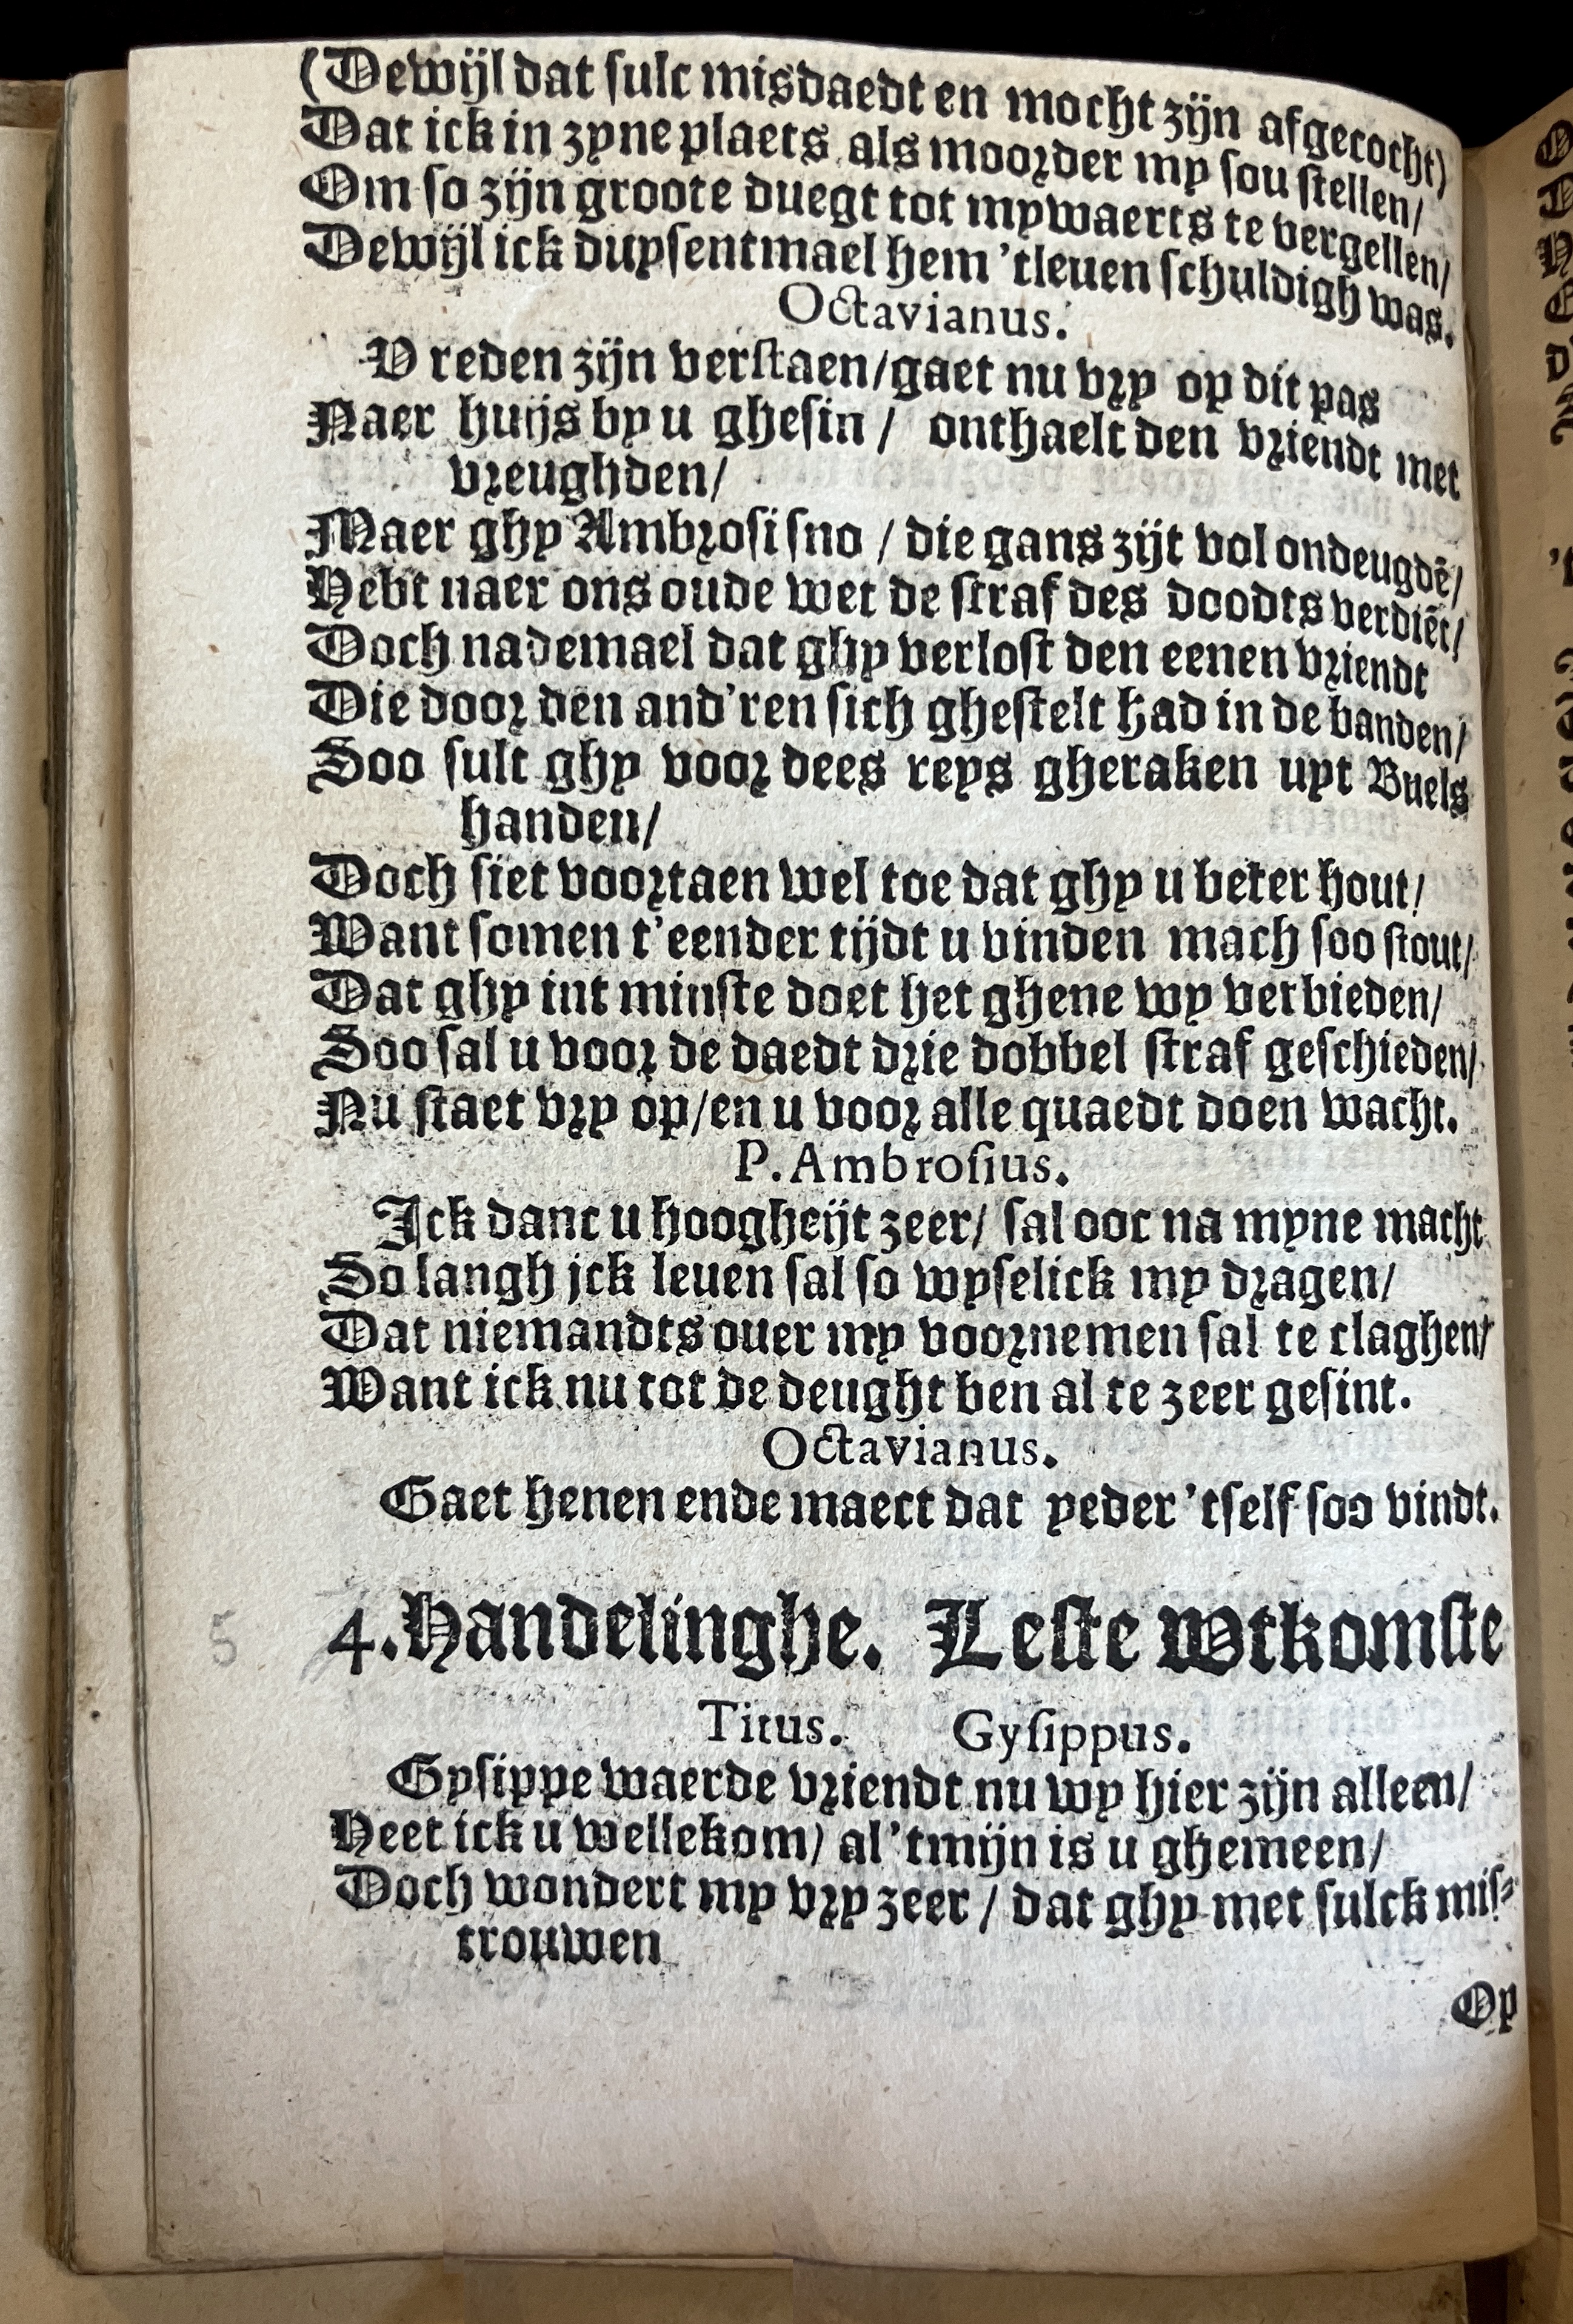 (Dewijl dat sulc misdaedt en mocht zijn afgecocht)
Dat ick in zyne plaets als moorder my sou stellen/
Om so zijn groote duegt tot mywaerts te vergellen/
Dewijl ick duysentmael hem 'tleuen schuldigh was.
Octavianus.
V reden zijn verstaen/gaet nu vry op dit pas
Naer huijs by u ghesin / onthaelt den vriendt met
vreughden/
Maer ghy Ambrosi sno / die gans zijt vol ondeugdē/
Hebt naer ons oude wet de straf des doodts verdiēt/
Doch nademael dat ghy verlost den eenen vriendt
Die door den and'ren sich ghestelt had in de banden/
Soo sult ghy voor dees reys gheraken uyt Buels
handen/
Doch siet voortaen wel toe dat ghy u beter hout/
Want somen t'eender tijdt u vinden mach soo stout/
Dat ghy int minste doet het ghene wy verbieden/
Soo sal u voor de daedt drie dobbel straf geschieden/
Nu staet vry op/en u voor alle quaedt doen wacht.
P. Ambrosius.
Ick danc u hoogheijt zeer/ sal ooc na myne macht
So langh jck leuen sal so wyselick my dragen/
Dat niemandts ouer my voornemen sal te claghen/
Want ick nu tot de deught ben al te zeer gesint.
Octavianus.
Gaet henen ende maect dat yeder 'tself soo vindt.
5
4. Handelinghe. Leste Wtkomste
Titus. Gysippus.
Gysippe waerde vriendt nu wy hier zijn alleen/
Heet ick u wellekom/ al 'tmijn is u ghemeen/
Doch wondert my vry zeer / dat ghy met sulck mis-
trouwen
Op